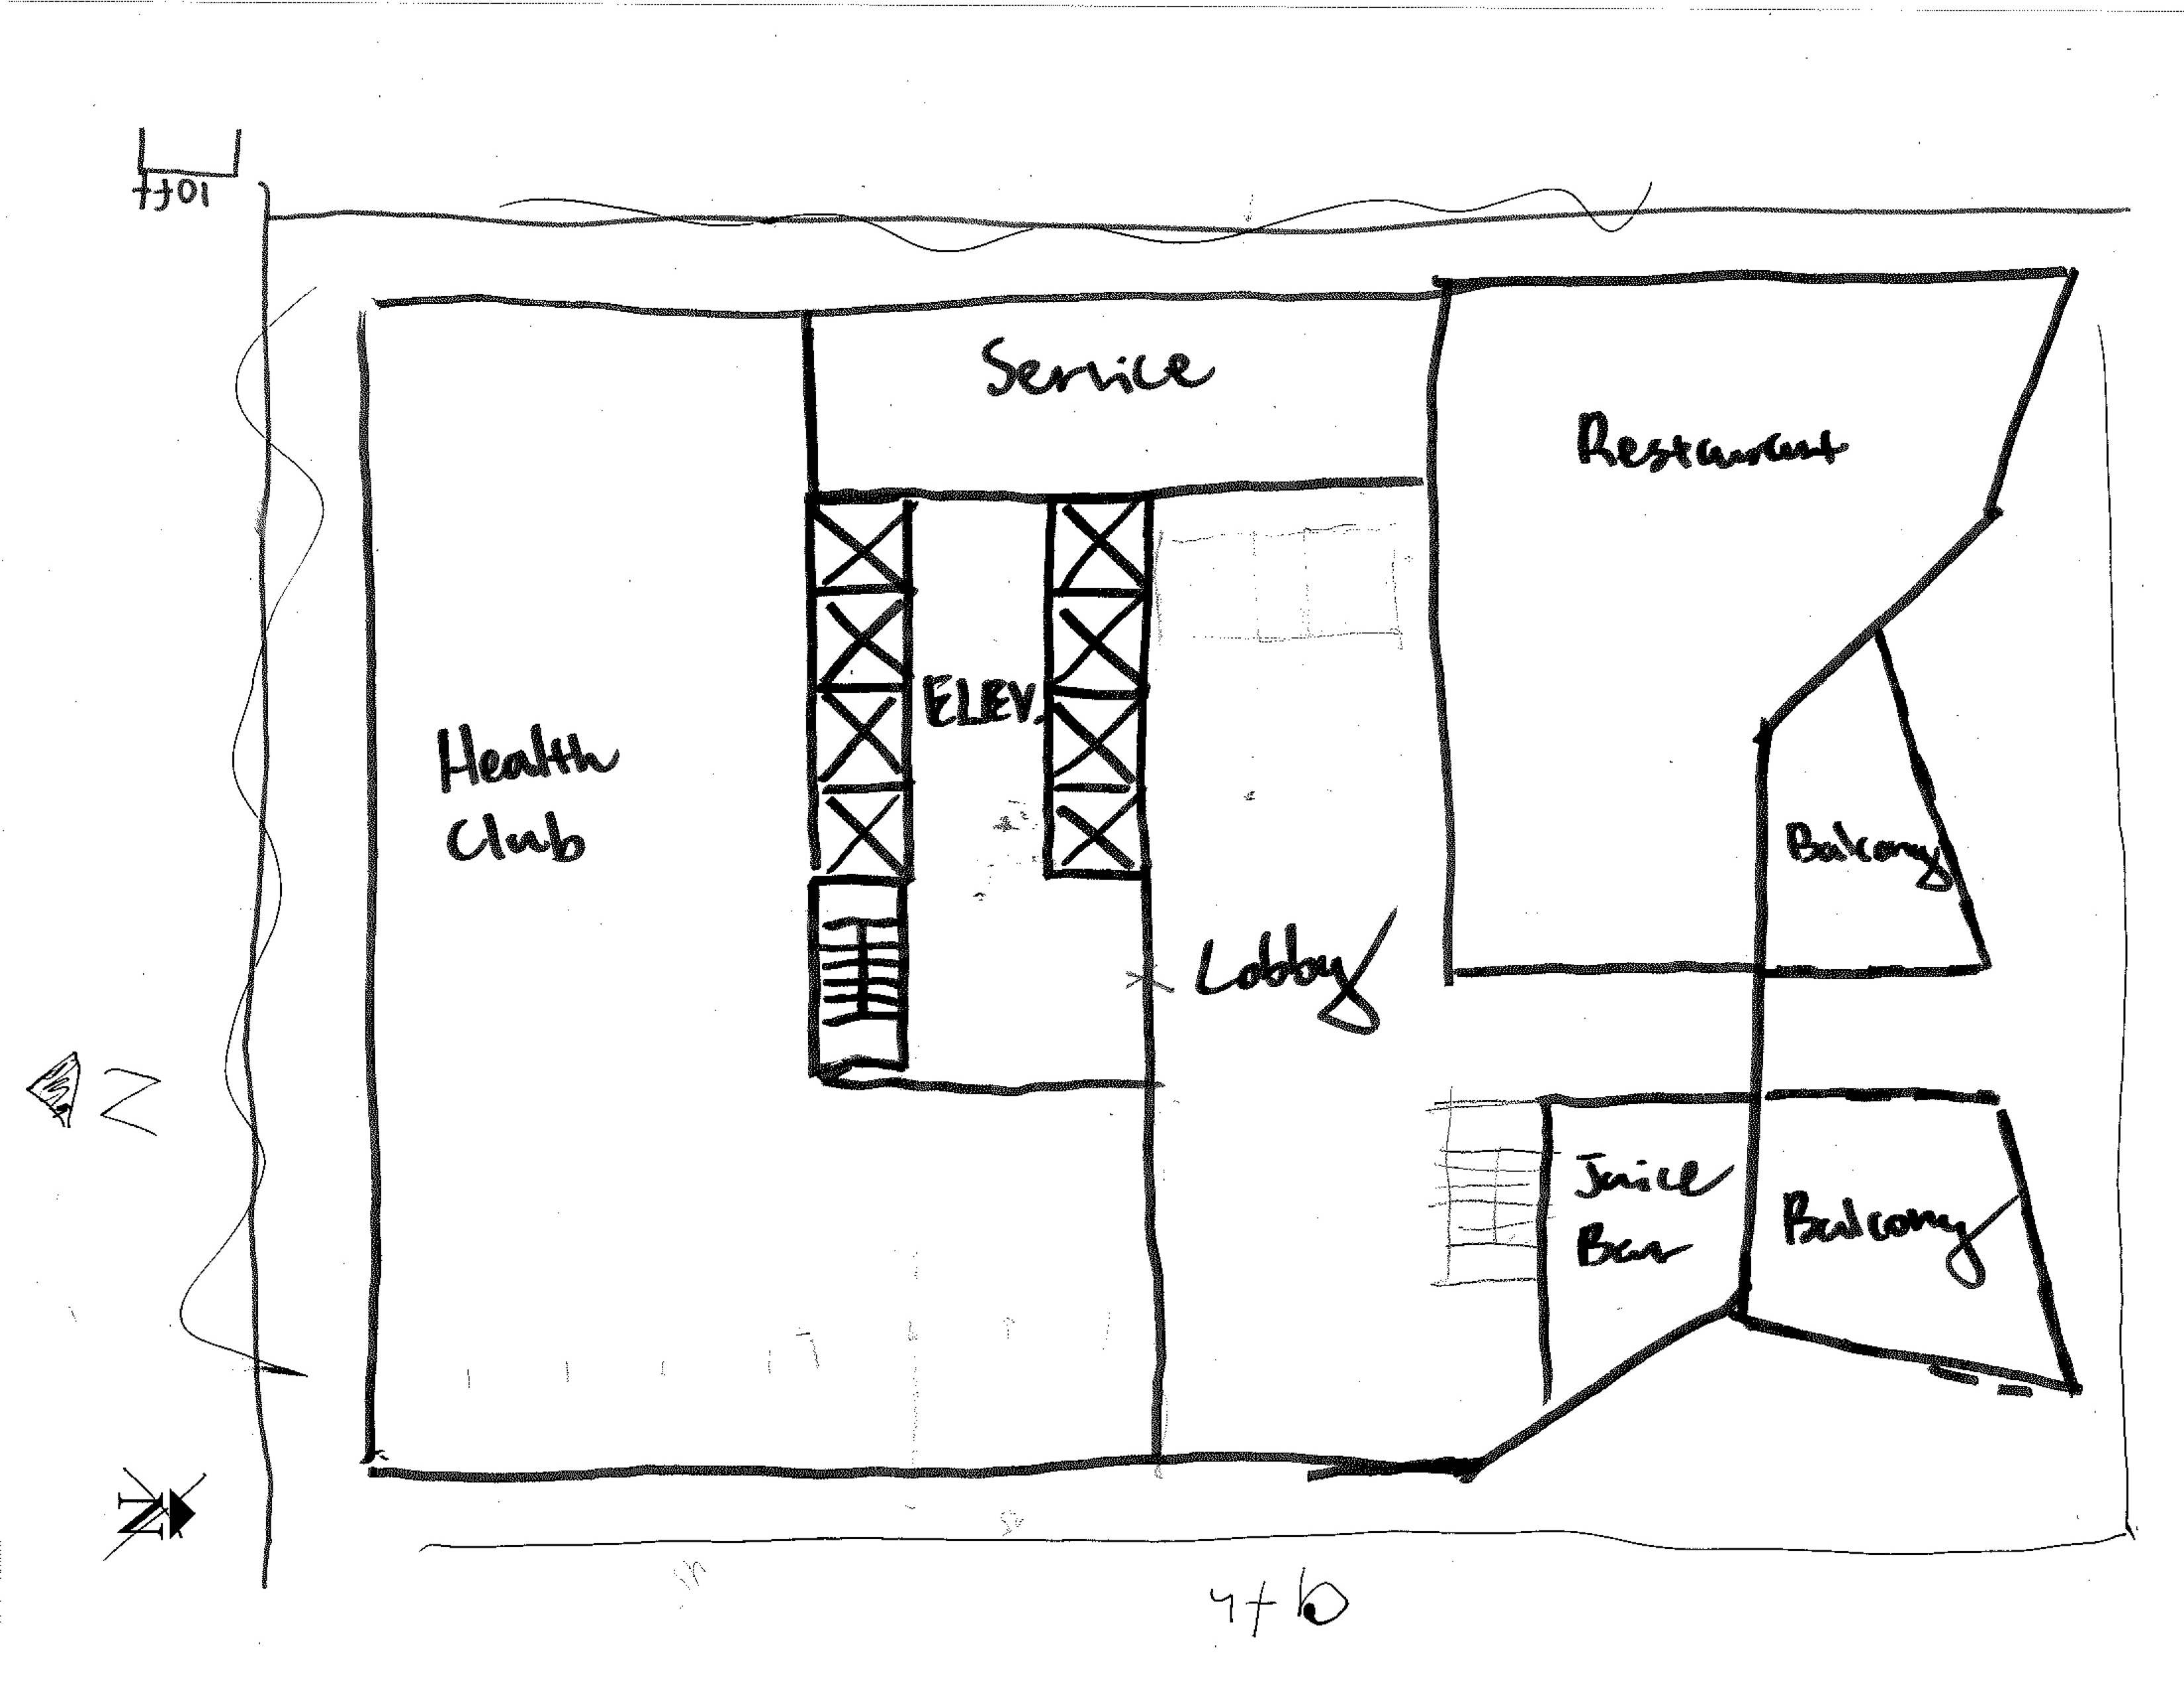 10ft
Service
Restaurant
ELEV.
Health
Club
Balcony
Lobby
N
Juice
Bar
Balcony
N